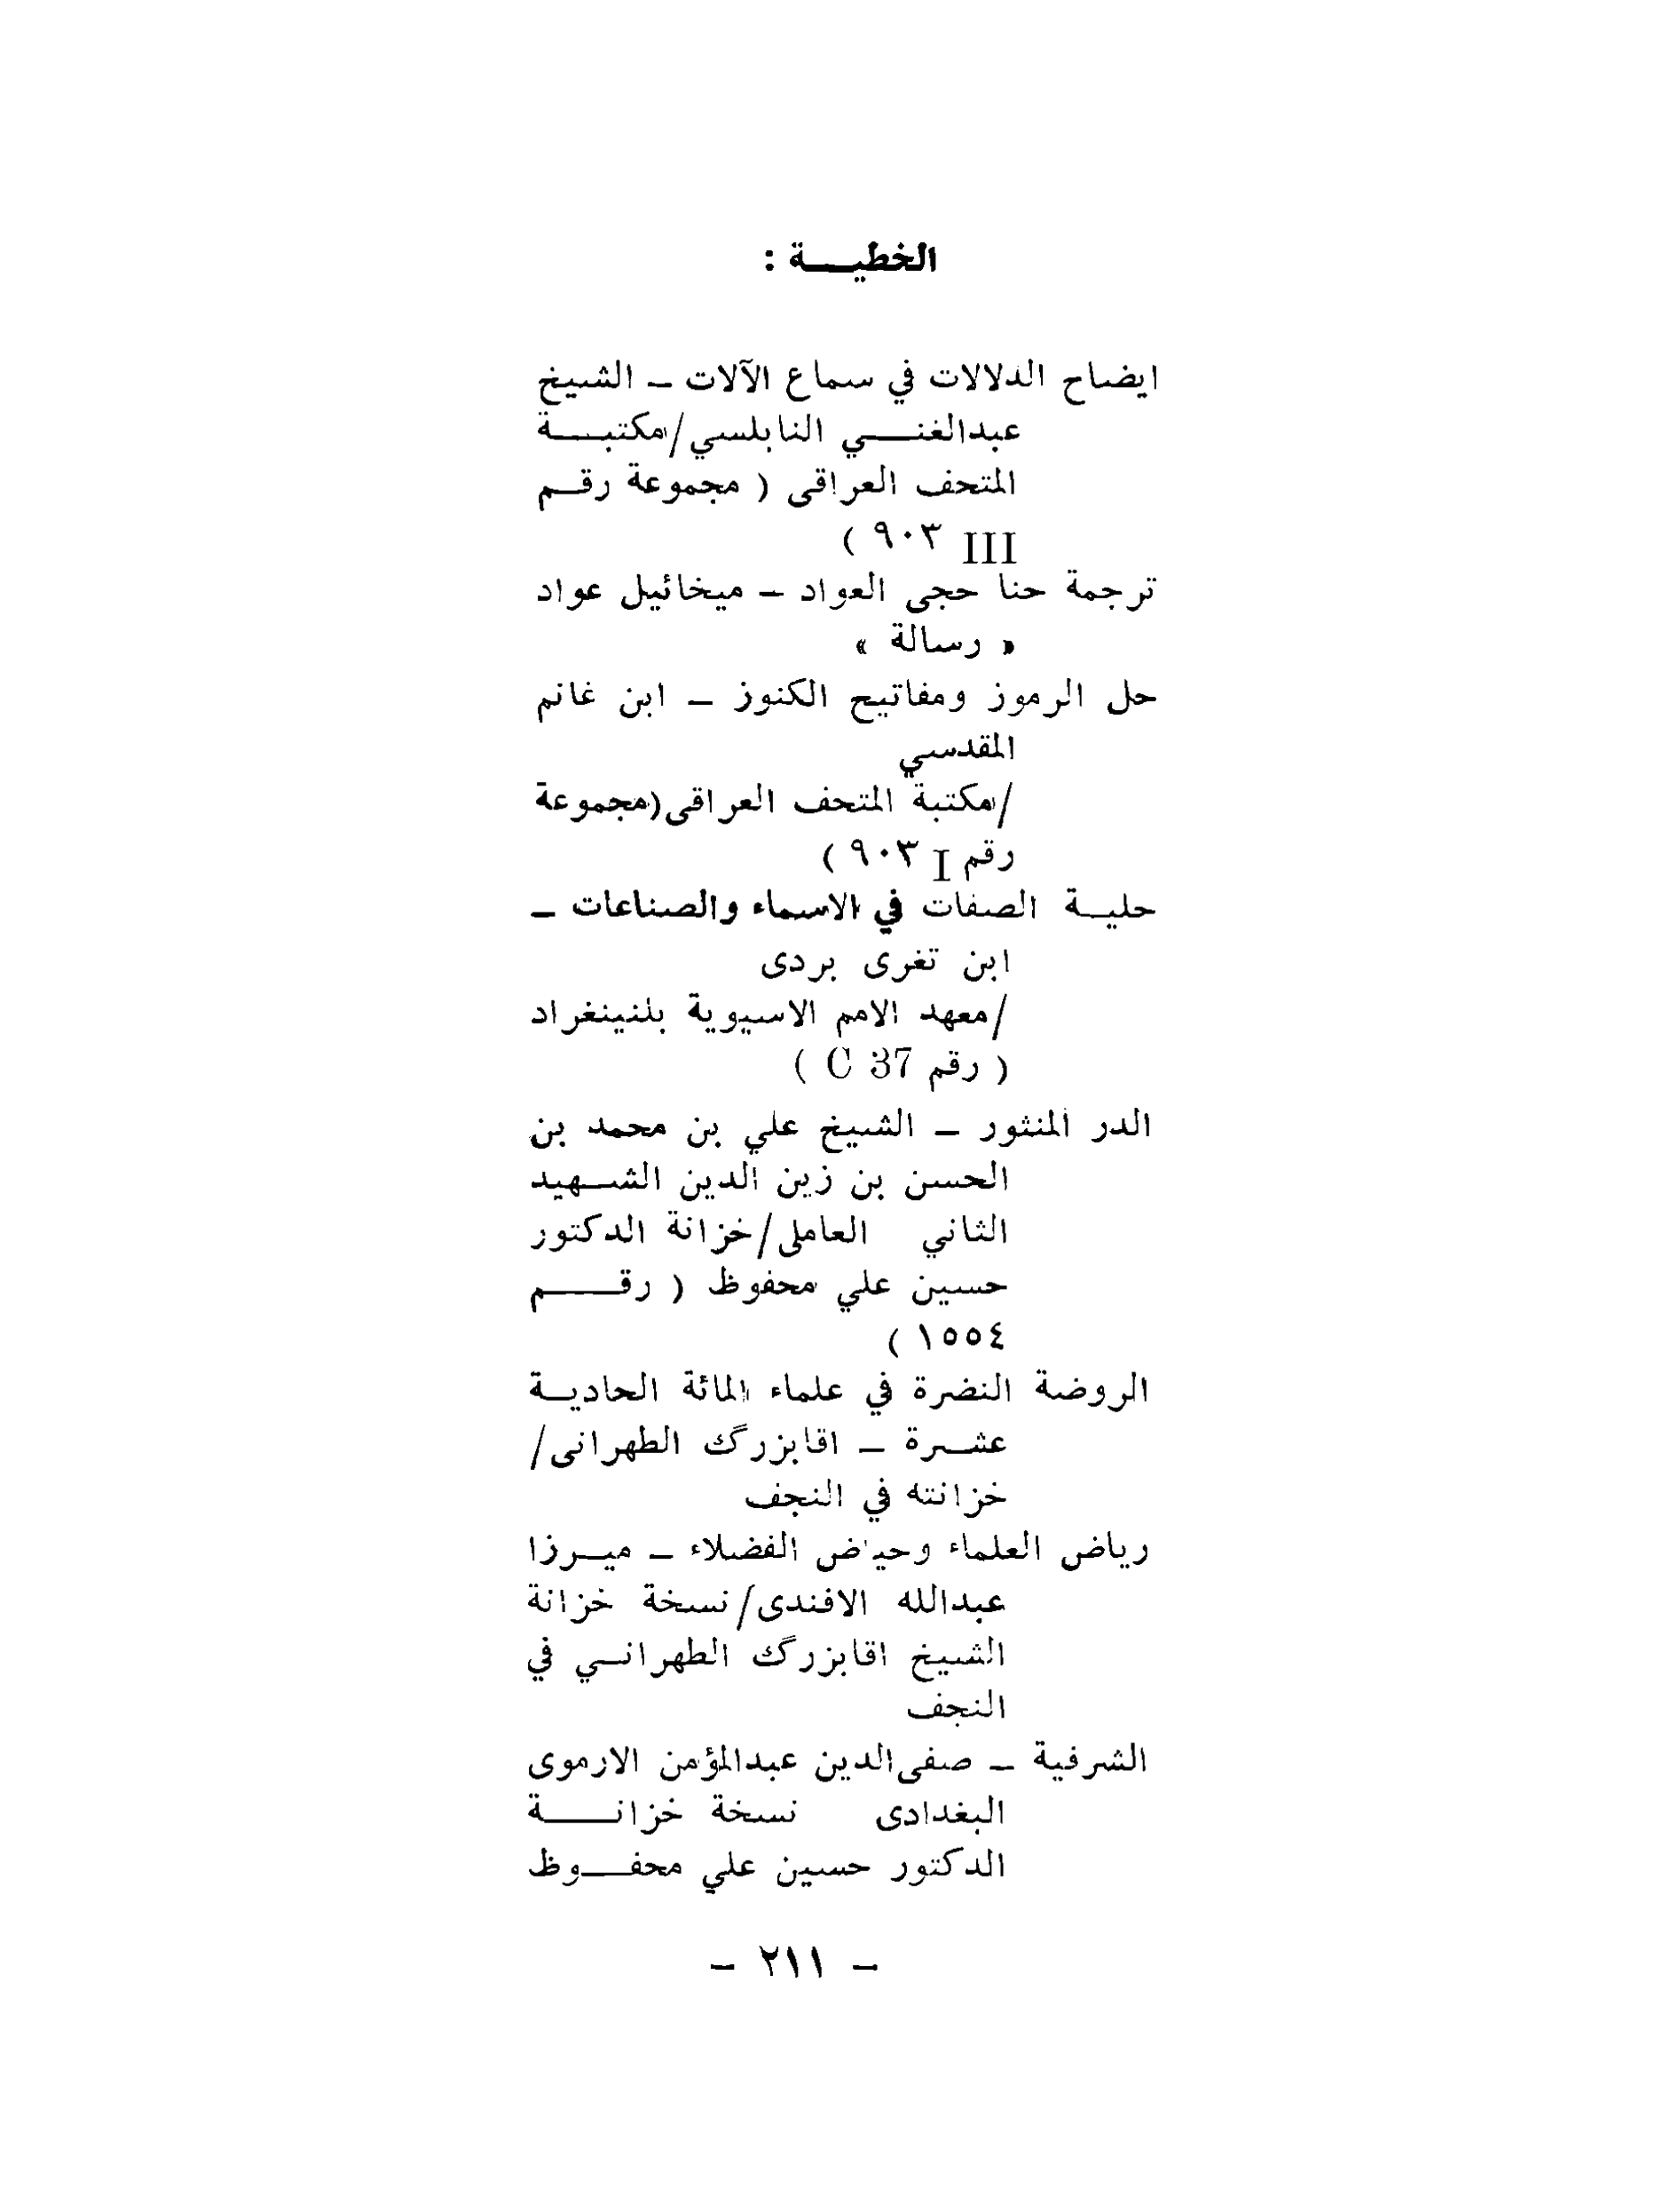 الخطيـــة :
ايضاح الدلالات في سماع الآلات ــ الشيخ
عبدالغنـــي النابلسي/مكتبـــة
المتحف العراقى ( مجموعة رقــم
III ٩٠٣ )
ترجمة حنا حجى العواد ــ ميخائيل عواد
« رسالة »
حل الرموز ومفاتيح الكنوز ــ ابن غانم
المقدسي
/مكتبة المتحف العراقى(مجموعة
رقم I ٩٠٣ )
حليــة الصفات في الاسماء والصناعات ــ
ابن تغرى بردى
/معهد الامم الاسيوية بلنينغراد
( رقم C 37 )
الدر المنثور ــ الشيخ علي بن محمد بن
الحسن بن زين الدين الشــهيد
الثاني العاملى/خزانة الدكتور
حسين علي محفوظ ( رقـــــم
١٥٥٤ )
الروضة النضرة في علماء المائة الحاديــة
عشــرة ــ اقابزرگ الطهرانى/
خزانته في النجف
رياض العلماء وحياض الفضلاء ــ ميــرزا
عبدالله الافندى/نسخة خزانة
الشيخ اقابزرگ الطهرانــي في
النجف
الشرفية ــ صفى‌الدين عبدالمؤمن الارموى
البغدادى نسخة خزانـــــة
الدكتور حسين علي محفـــوظ
ــ ٢١١ ــ